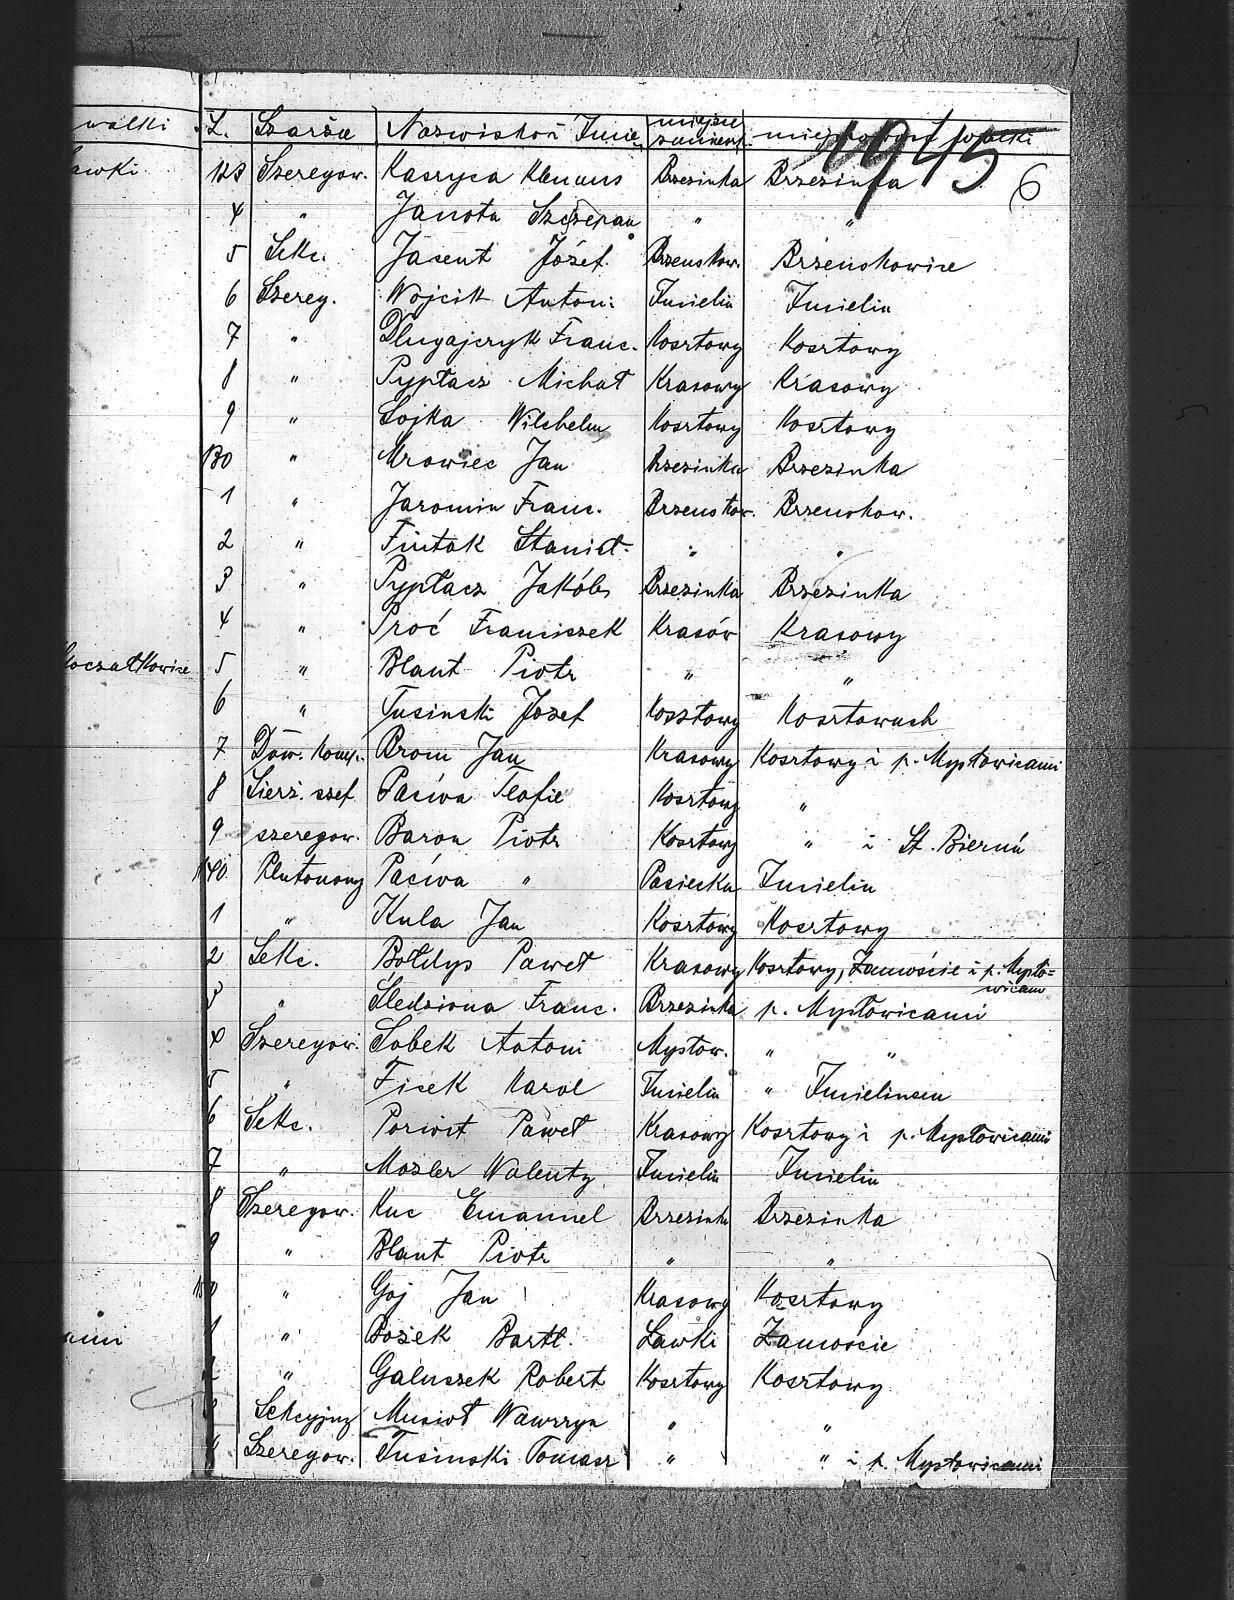 walki
L. Szarża Nazwisko i Imię miejsce zamieszk. miejscowość walki
1945
6
awki.
123 Szeregow. Kasryca Klemens Brzezinka Brzezinka
4 " Janota Szczepan " "
5 Sekc. Jasent Józef Brzenskow. Brzenskowice
6 Szereg. Wojcik Antoni Imielin Imielin
7 " Dlugajczyk Franc. Kosztowy Kosztowy
8 " Pyptacz Michał Krasowy Krasowy
9 " Sojka Wilchelm Kosztowy Kosztowy
130 " Mrowiec Jan Brzezinka Brzezinka
1 " Jaromin Franc. Brzenskow. Brzenskow.
2 " Fintak Stanisł. " "
3 " Pyptacz Jakób Brzezinka Brzezinka
4 " Proć Franciszek Krasów Krasowy
oczałkowice 5 " Blaut Piotr " "
6 " Tusinski Józef Kosztowy Kosztowach
7 Dow. Komp. Brom Jan Krasowy Kosztowy i p. Mysłowicami
8 Sierż. szef Paćwa Teofil Kosztowy "
9 szeregow. Baron Piotr Kosztowy " i St. Bieruń
140 Plutonowy Paćwa " Pasieczka Imielin
1 " Kula Jan Kosztowy Kosztowy
2 Sekc. Bołdys Paweł Krasowy Kosztowy, Zamoście i p. Mysło=
wicam
3 " Śledziona Franc. Brzezinka p. Mysłowicami
4 Szeregow. Sobek Antoni Mysłow. " "
5 " Ficek Karol Imielin " Imielinem
6 Sekc. Porwit Paweł Krasowy Kosztowy i p. Mysłowicami
7 " Mozler Walenty Imielin Imielin
8 Szeregow. Kuc Emanuel Brzezinka Brzezinka
9 " Blaut Piotr " "
150 " Goj Jan Krasowy Kosztowy
ami 1 " Bożek Bartł. Ławki Zamoście
2 " Galuszek Robert Kosztowy Kosztowy
3 Sekcyjny Musioł Wawrzyn " "
4 Szeregow. Tusinski Tomasz " " i p. Mysłowicami